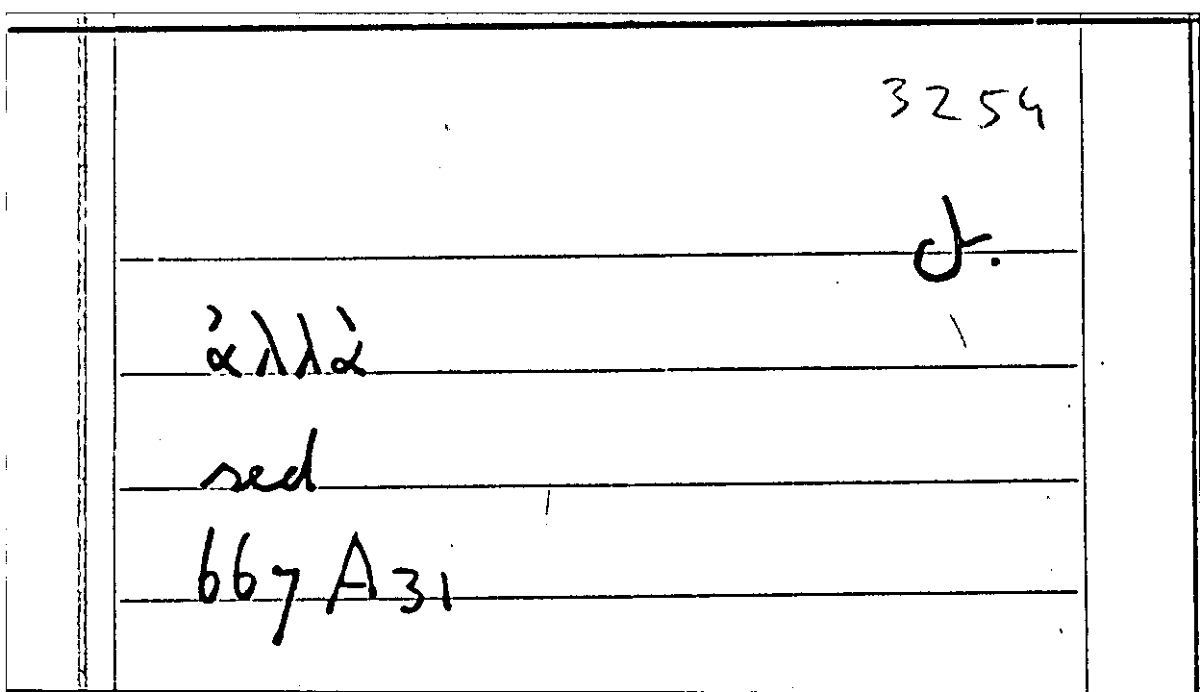 3254
ἀλλὰ
sed
667 A 31